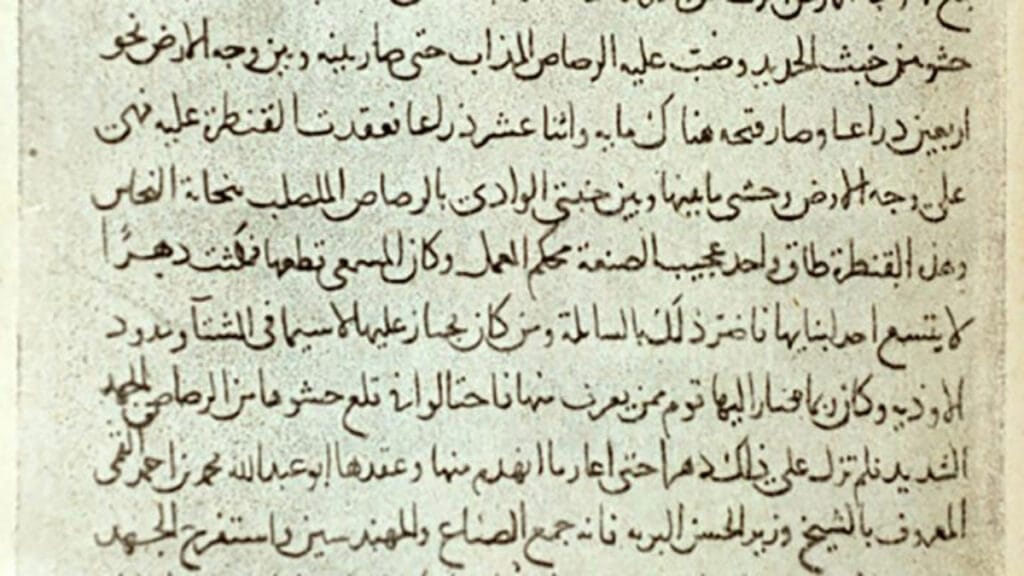 حشوه من خبث الحديد وصب عليه الرصاص المذاب حتى صار بينه وبين وجه الارض نحو
اربعين ذراعا وصار فتحه هناك مايه واثنا عشر ذراعا فعقدت القنطرة عليه فهى
على وجه الارض وحشى ما بينها وبين جنبتى الوادى بالرصاص المصلب بنحاتة النحاس
وهذه القنطرة طاق واحد عجيب الصنعة محكم العمل وكان المسمعى قطعها فمكثت دهرًا
لا يتسع احد لبنايها فاضر ذلك بالسابلة ومن كان يجتاز عليها لا سيما فى الشتآ ومدود
الاوديه وكان ربما صار اليها قوم ممن يقرب منها فاحتالوا قلع حشوها من الرصاص بالجهد
الشديد فلم تزل على ذلك دهرا حتى اعاد ما انهدم منها وعقدها ابو عبد الله محمد بن احمد القمى
المعروف بالشيخ وزير الحسن فانه جمع الصناع والمهندسين واستفرغ الجهد